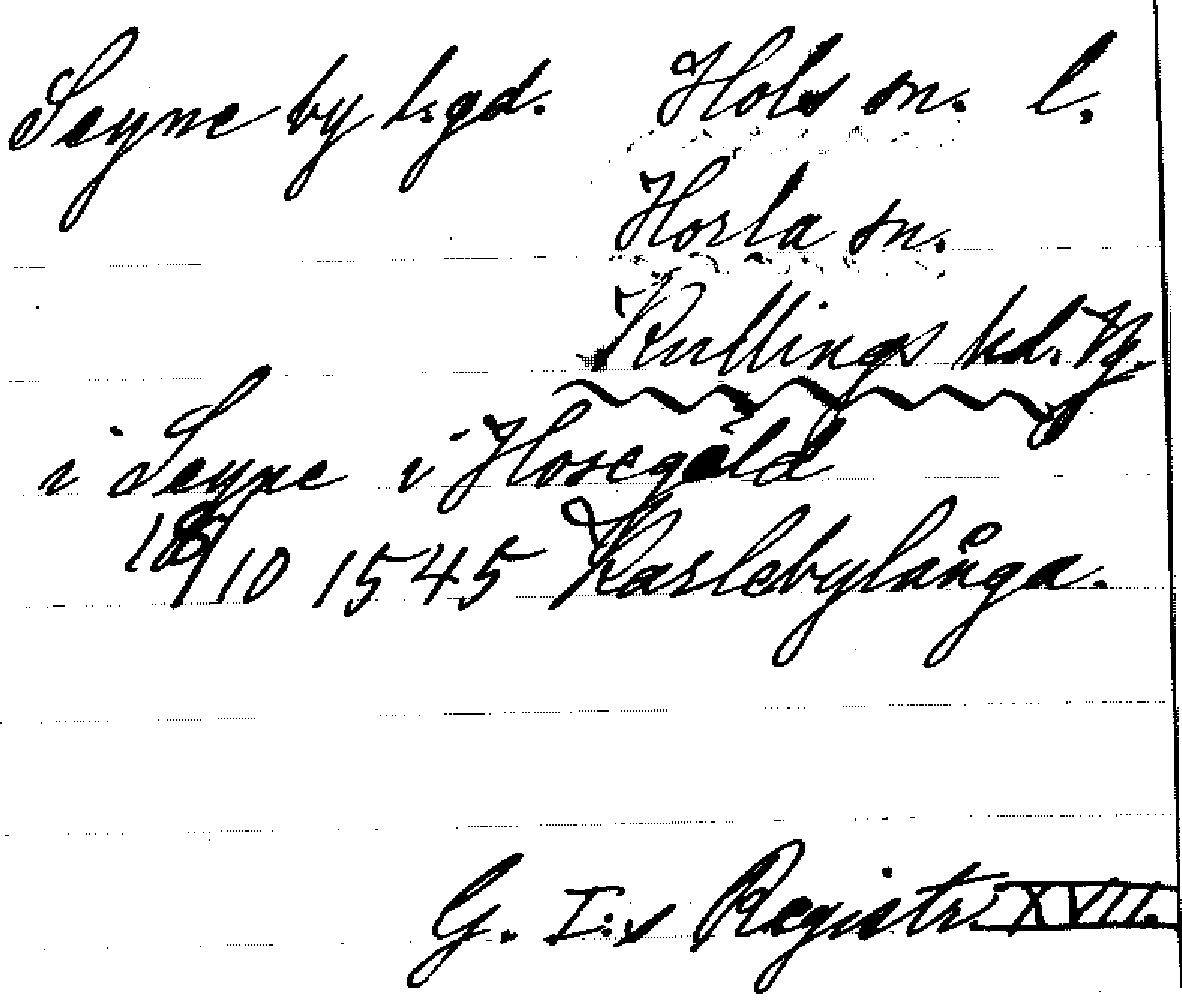 Seyne by l. gd. Hols sn. l.
Horla sn.
Kullings hd. Vg.
i Seyne i Horsegäld
18/10 1545 Karlebylånga.
G. I:s Registr. XVII.